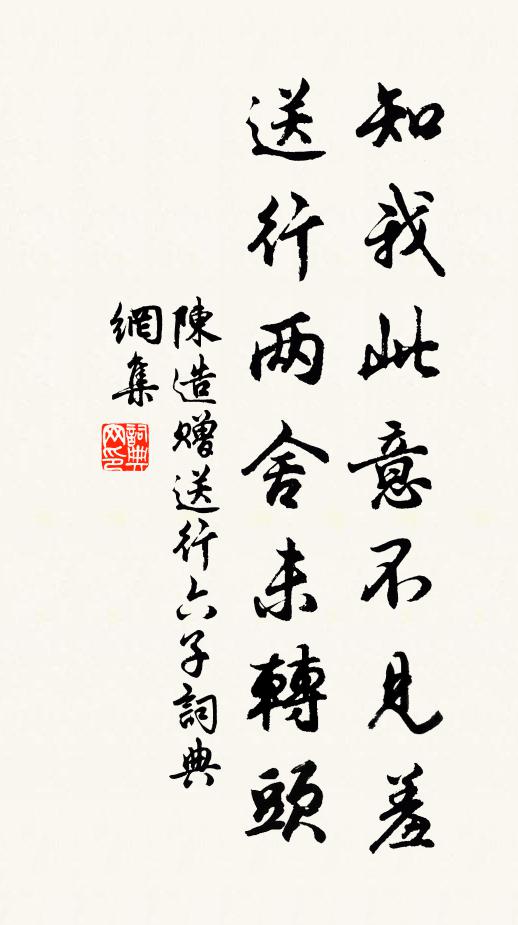 知我此意不見羞
送行两舍未轉頭
陳造贈送行六子詞典
網集
詞典網印